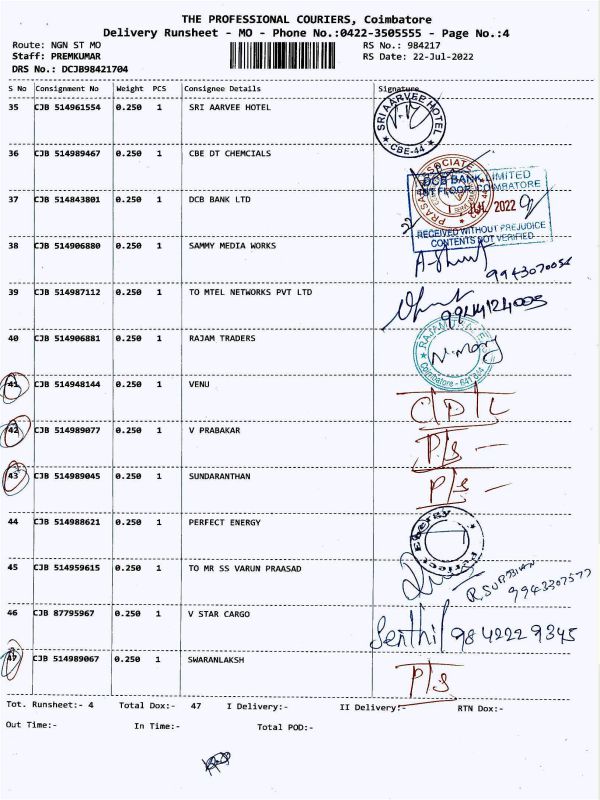 THE PROFESSIONAL COURIERS, Coimbatore
Delivery Runsheet - MO - Phone No.:0422-3505555 - Page No.:4
Route: NGN ST MO RS No.: 984217
Staff: PREMKUMAR RS Date: 22-Jul-2022
DRS No.: DCJB98421704
S No Consignment No Weight PCS Consignee Details Signature
35 CJB 514961554 0.250 1 SRI AARVEE HOTEL
SRI AARVEE HOTEL
CBE-44
36 CJB 514989467 0.250 1 CBE DT CHEMCIALS
37 CJB 514843801 0.250 1 DCB BANK LTD
DCB BANK LIMITED
COIMBATORE
22 JUL 2022
RECEIVED WITHOUT PREJUDICE
CONTENTS NOT VERIFIED
38 CJB 514906880 0.250 1 SAMMY MEDIA WORKS
39 CJB 514987112 0.250 1 TO MTEL NETWORKS PVT LTD
40 CJB 514906881 0.250 1 RAJAM TRADERS
41 CJB 514948144 0.250 1 VENU
42 CJB 514989077 0.250 1 V PRABAKAR P/s
43 CJB 514989045 0.250 1 SUNDARANTHAN P/s
44 CJB 514988621 0.250 1 PERFECT ENERGY
45 CJB 514959615 0.250 1 TO MR SS VARUN PRAASAD
46 CJB 87795967 0.250 1 V STAR CARGO Senthil 9842229345
47 CJB 514989067 0.250 1 SWARANLAKSH P/s
Tot. Runsheet:- 4 Total Dox:- 47 I Delivery:- II Delivery:- RTN Dox:-
Out Time:- In Time:- Total POD:-